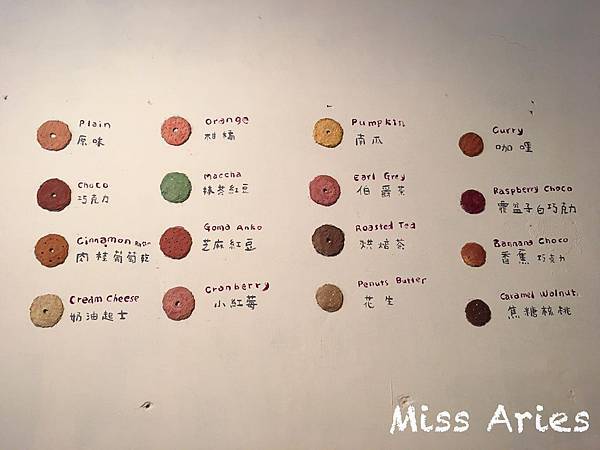 Plain
原味
Orange
柑橘
Pumpkin
南瓜
Curry
咖哩
Choco
巧克力
Maccha
抹茶紅豆
Earl Grey
伯爵茶
Raspberry Choco
覆盆子白巧克力
Cinnamon
肉桂葡萄乾
Goma Anko
芝麻紅豆
Roasted Tea
烘焙茶
Bannana Choco
香蕉巧克力
Cream Cheese
奶油起士
Cranberry
小紅莓
Penuts Butter
花生
Caramel Walnut
焦糖核桃
Miss Aries